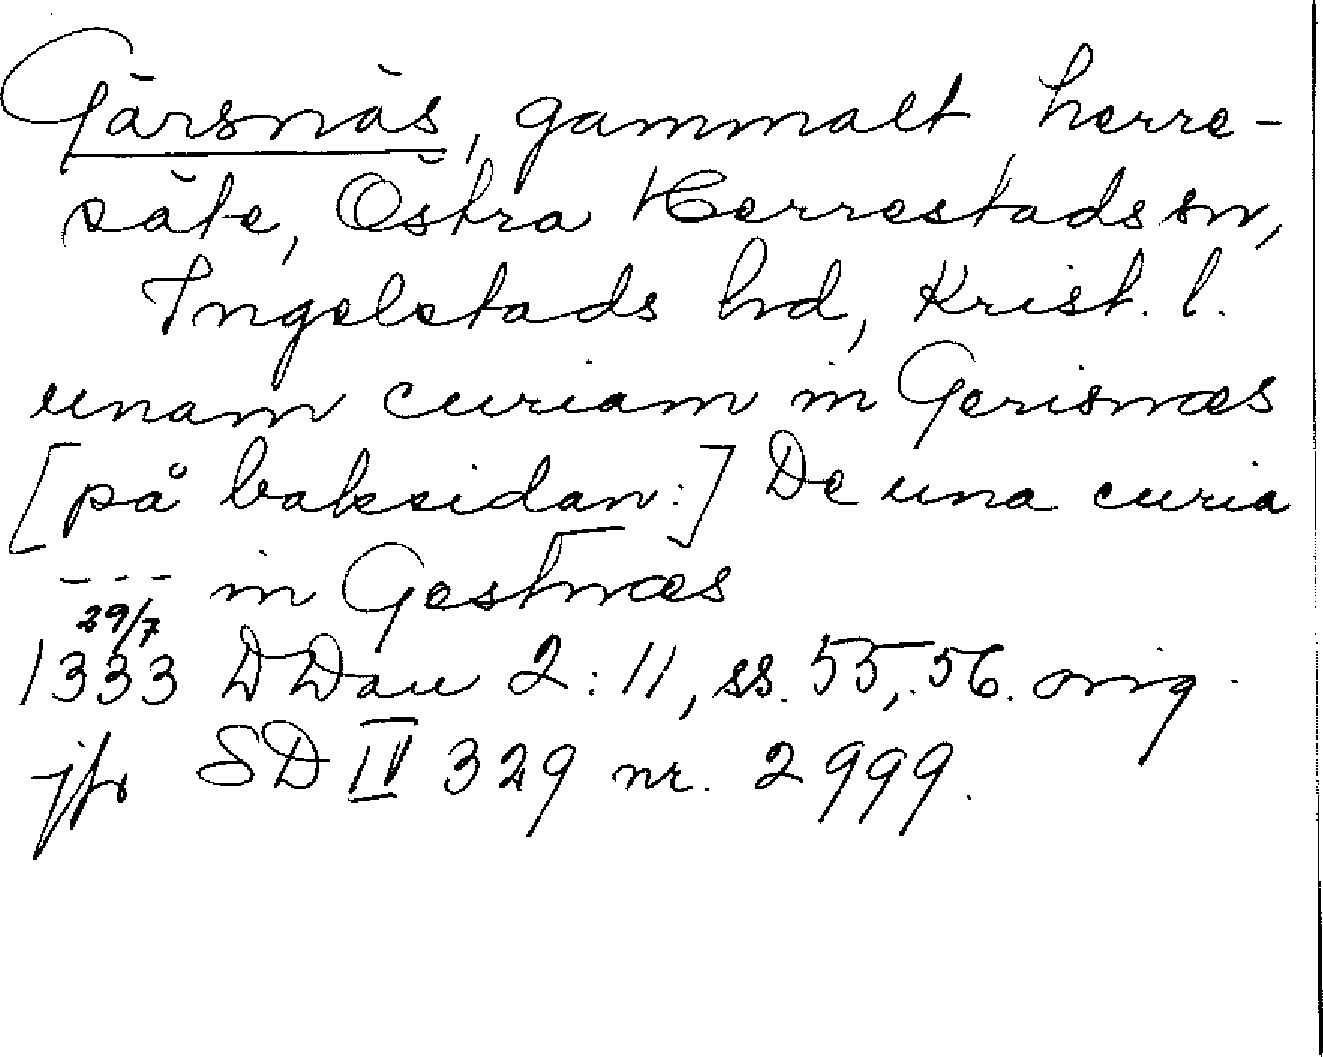 Gärsnäs, gammalt herre-
säte, Östra Herrestads sn,
Ingelstads hd, Krist. l.
unam curiam in Gerisnæs
[på baksidan:] De una curia
--- in Gestnæs
29/7
1333 DDan 2:11, ss. 55, 56. orig.
jfr SD IV 329 nr. 2999.